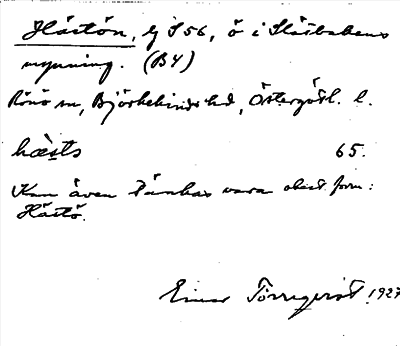 Hästön, lj S 56, ö i Slätbakens
mynning. (B4)
Rönö sn, Björkekinds hd, Östergötl. l.
hæsts 65.
Kan även tänkas vara obest. form:
Hästö.
Einar Törnqvist 1927